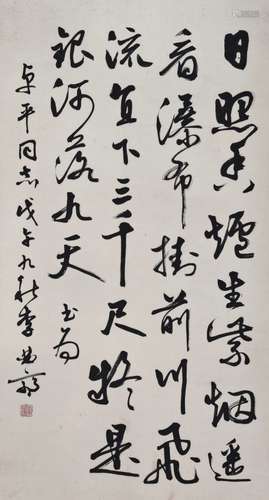 日照香炉生紫烟遥
看瀑布掛前川飛
流直下三千尺疑是
銀河落九天 书为
卓平同志戊午九秋李曲斋